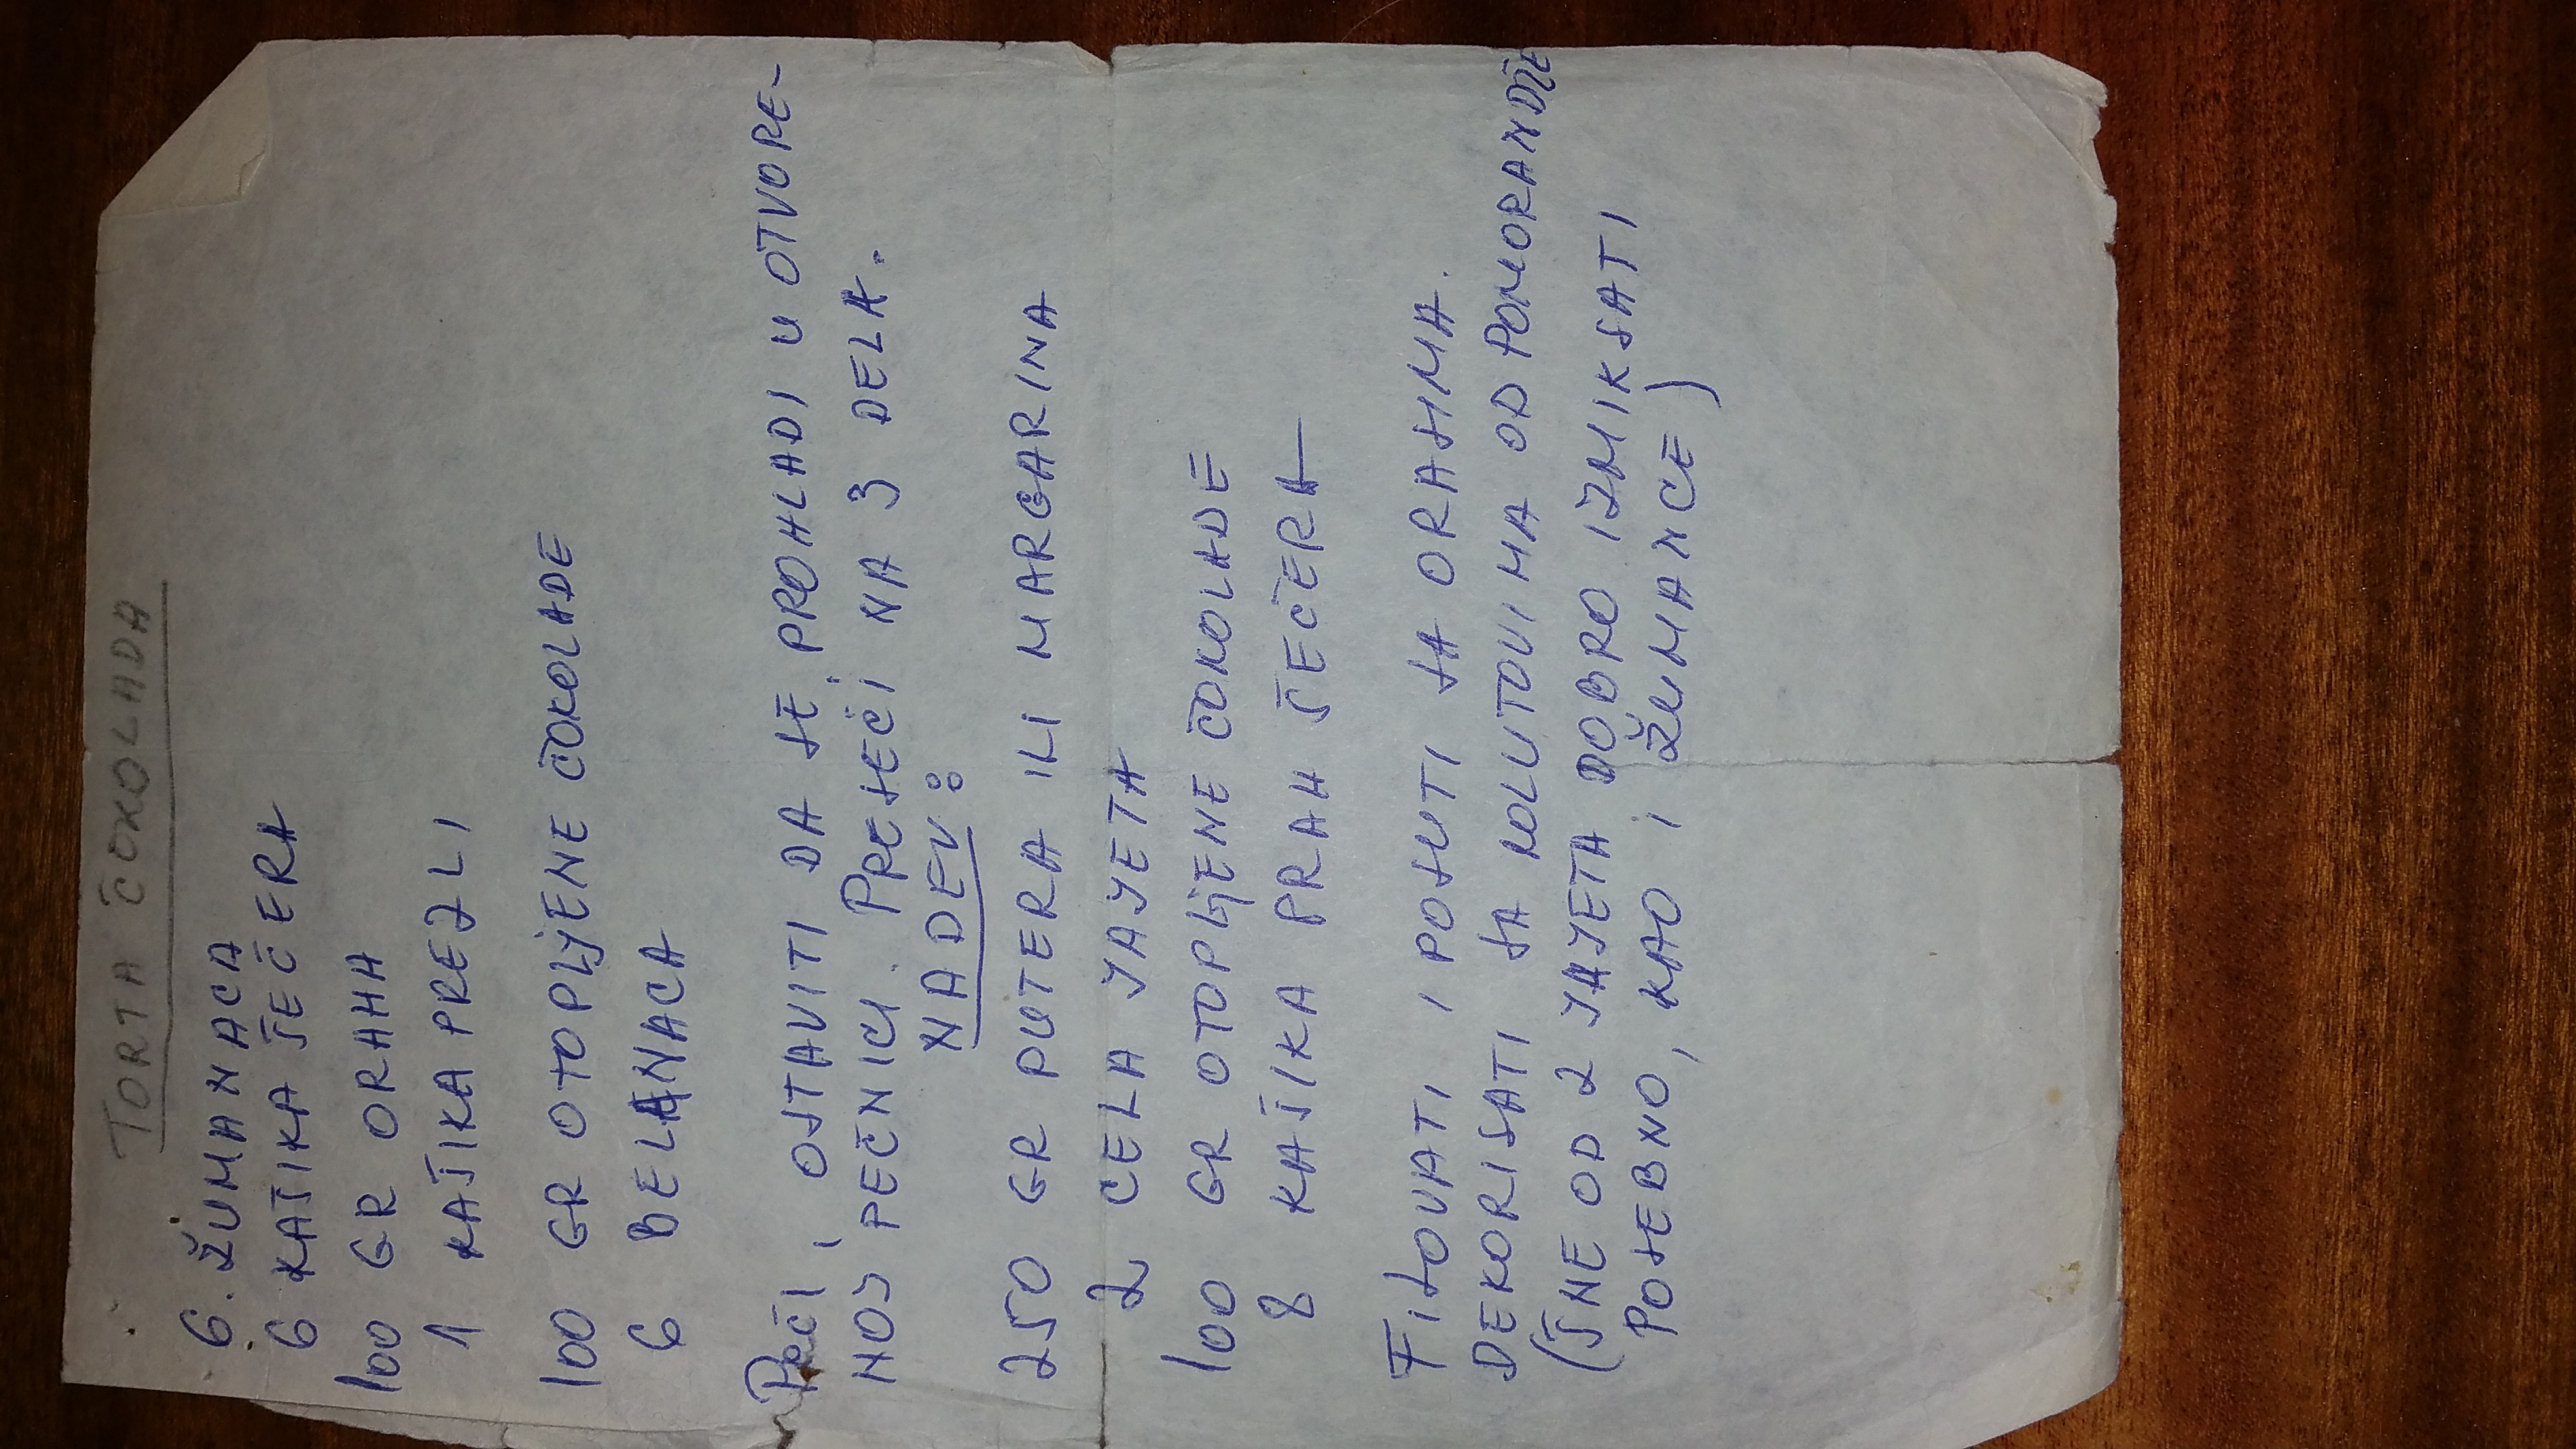 TORTA ČOKOLADA
6. ŽUMANACA
6 KAŠIKA ŠEĆERA
100 GR ORAHA
1 KAŠIKA PREZLI
100 GR OTOPLjENE ČOKOLADE
6 BELANACA
PEĆI, OSTAVITI DA SE PROHLADI U OTVORE-
NOJ PEĆNICI. PRESEĆI NA 3 DELA.
NADEV:
250 GR PUTERA ILI MARGARINA
2 CELA JAJETA
100 GR OTOPLjENE ČOKOLADE
8 KAŠIKA PRAH ŠEĆERA
FILOVATI I POSUTI SA ORASIMA.
DEKORISATI SA KOLUTOVIMA OD POMORANDŽE
(ŠNE OD 2 JAJETA DOBRO IZMIKSATI
POSEBNO, KAO I ŽUMANCE)